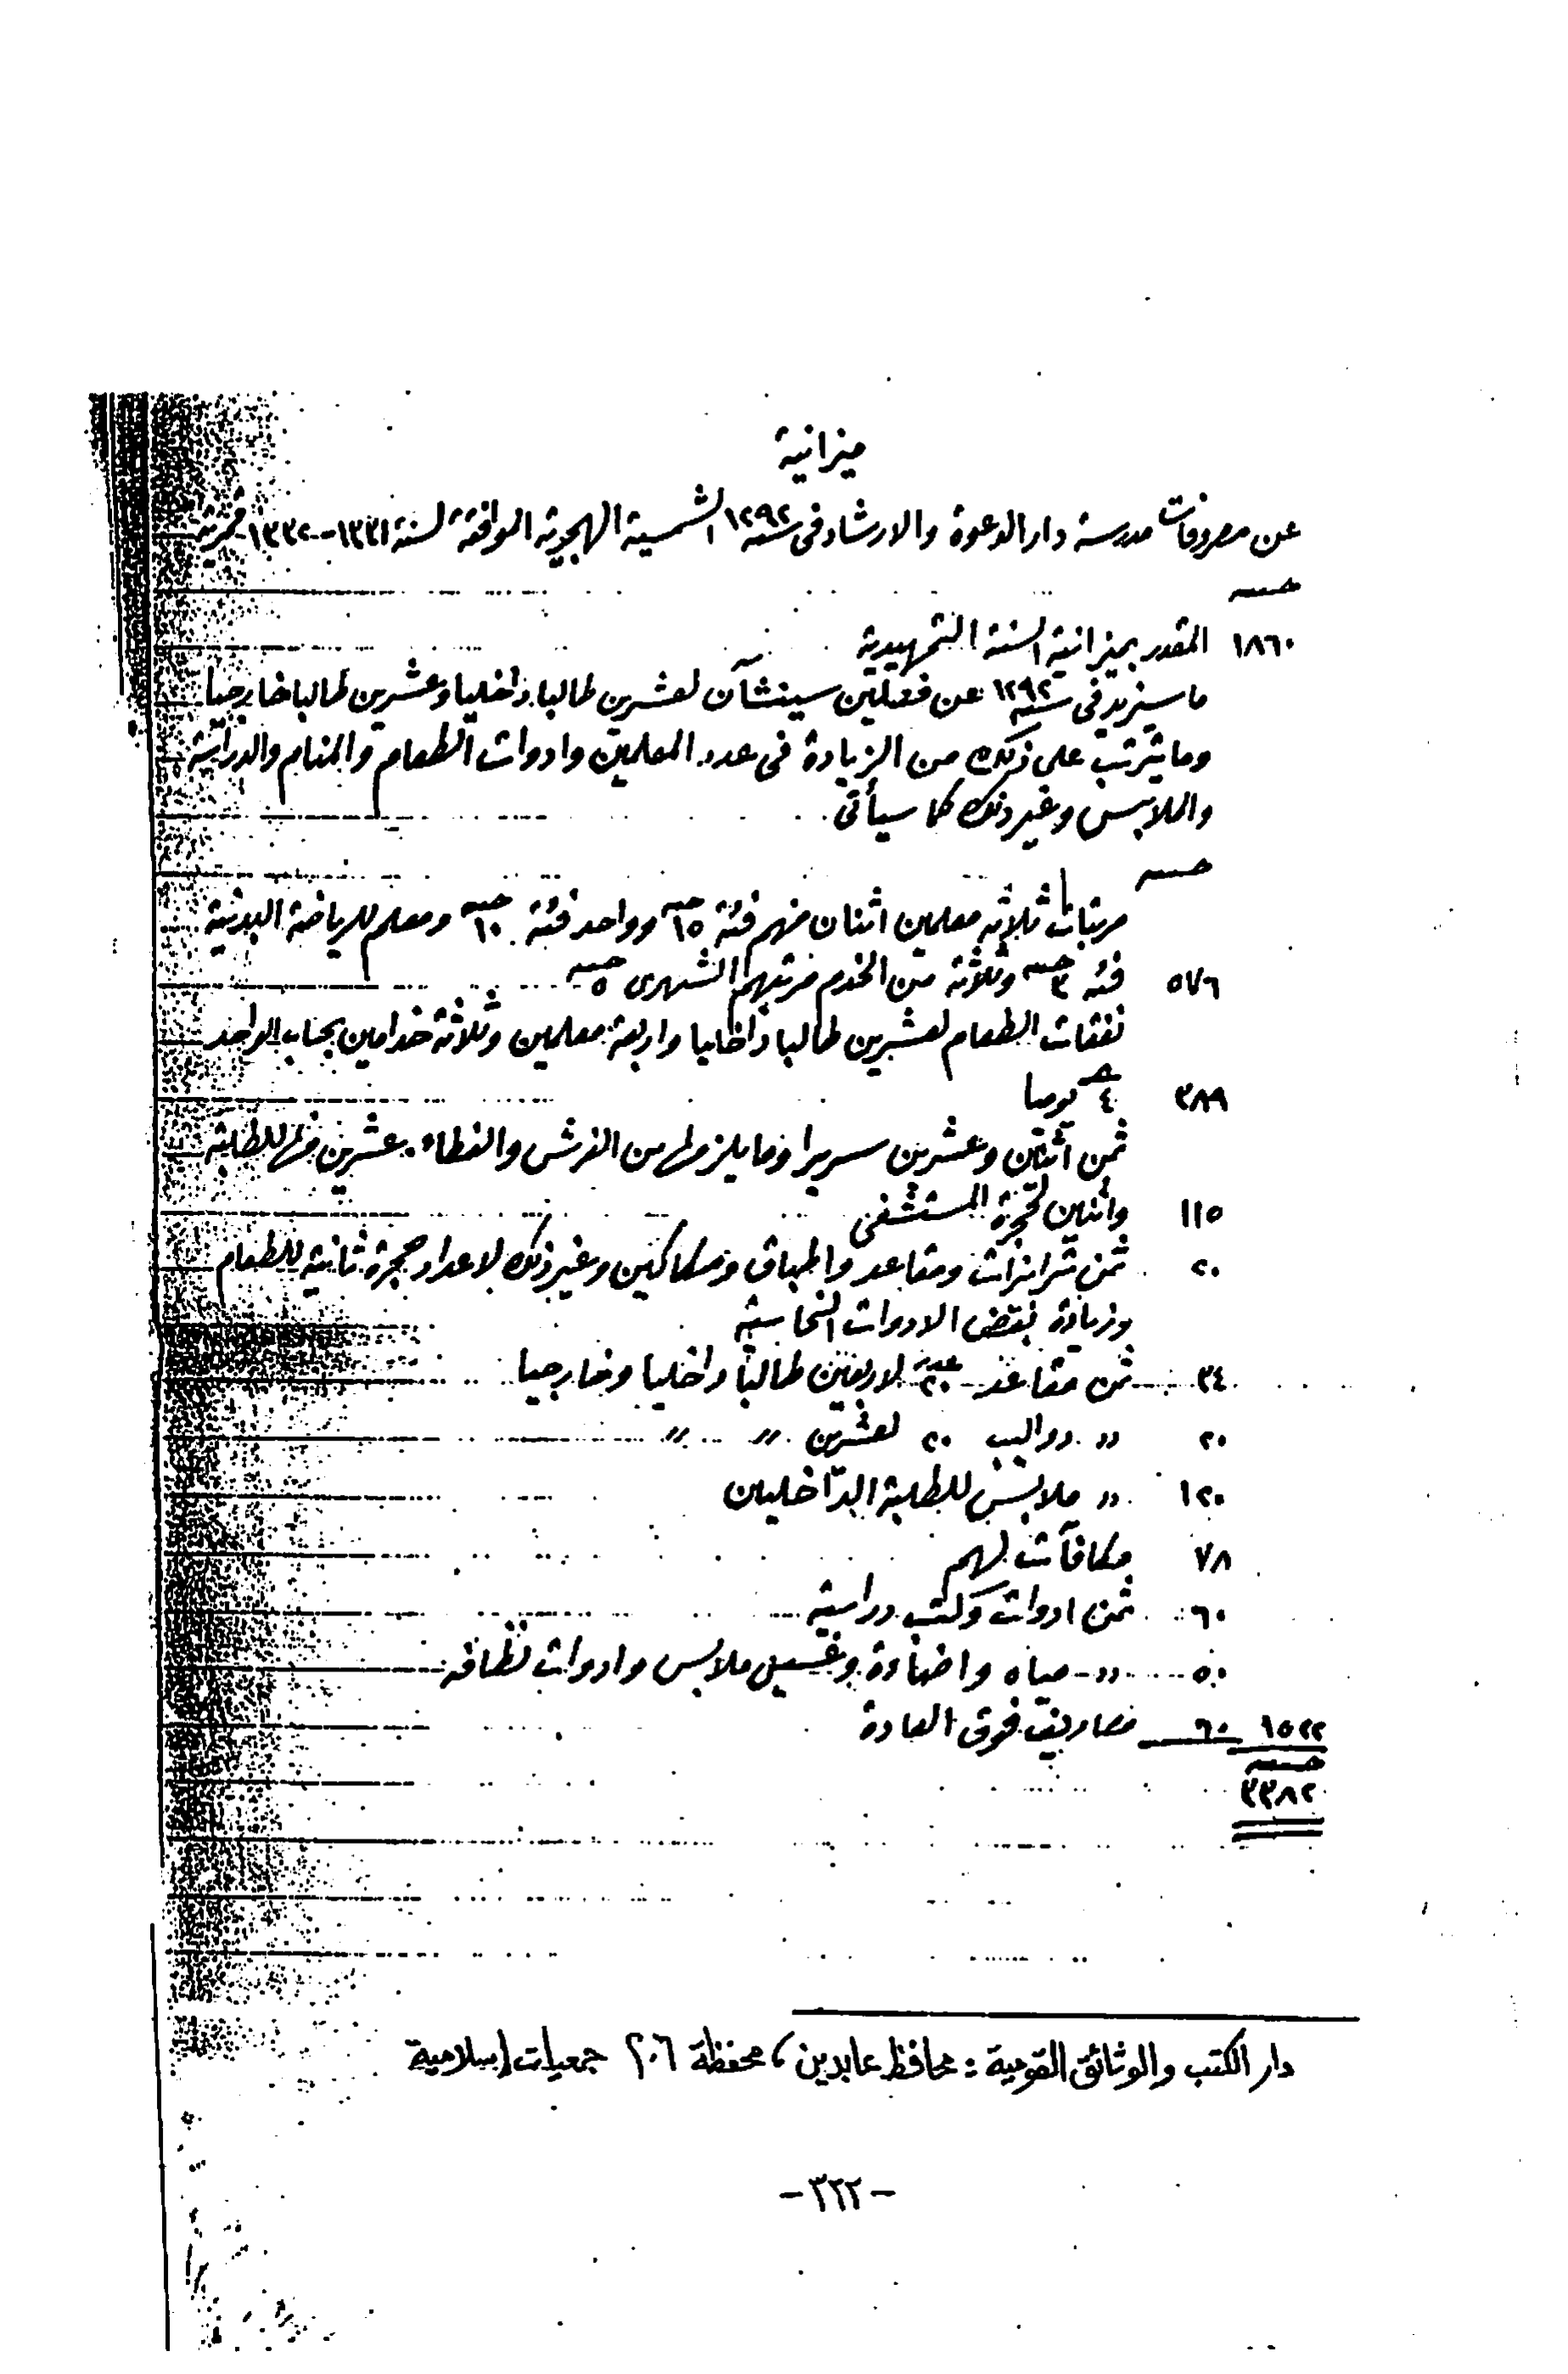 ميزانية
عن مصروفات مدرسة دار الدعوة والارشاد فى سنة ١٢٩٢ الشمسية الهجرية الموافقة لسنة ١٣٣١-١٣٣٢ قمرية
جنيه
١٨٦٠ المقدر بميزانية السنة التمهيدية
ما سيزيد فى سنة ١٢٩٢ عن فصلين سينشآن لعشرين طالبا داخليا وعشرين طالبا خارجيا
وما يترتب على ذلك من الزيادة فى عدد المعلمين وادوات الطعام والمنام والدراسة
والملابس وغير ذلك كما سيأتى
جنيه
مرتبات ثلاثة معلمين اثنان منهم فئة ١٥ جنيه وواحد فئة ١٠ جنيه ومعلم للرياضة البدنية
٥٧٦ فئة ٣ جنيه وثلاثة من الخدم مرتبهم الشهرى ٥ جنيه
نفقات الطعام لعشرين طالبا داخليا واربعة معلمين وثلاثة خدامين بحساب الواحد
٣٨٩ ٤ يوميا
ثمن اثنان وعشرين سريرا وما يلزم لها من الفرش والغطاء. عشرين منها للطلبة
١١٥ واثنين لحجرة المستشفى
٢٠ ثمن ترابزات ومقاعد واطباق وسكاكين وغير ذلك لاعداد حجرة ثانية للطعام
وزيادة بعض الادوات النحاسية
٣٤ ثمن مقاعد عدد ٢٠ لاربعين طالبا داخليا وخارجيا
٢٠ 〃 دواليب ٢٠ لعشرين 〃 〃
١٢٠ 〃 ملابس للطلبة الداخليين
٧٨ مكافآت لهم
٦٠ ثمن ادوات وكتب دراسية
٥٠ 〃 مياه واضاءة وغسيل ملابس وادوات نظافه
١٥٢٢ ٦٠ مصاريف فوق العادة
جنيه
٣٣٨٢
دار الكتب والوثائق القومية : محافظ عابدين ، محفظة ٢٠٦ جمعيات إسلامية
-٣٢٢-